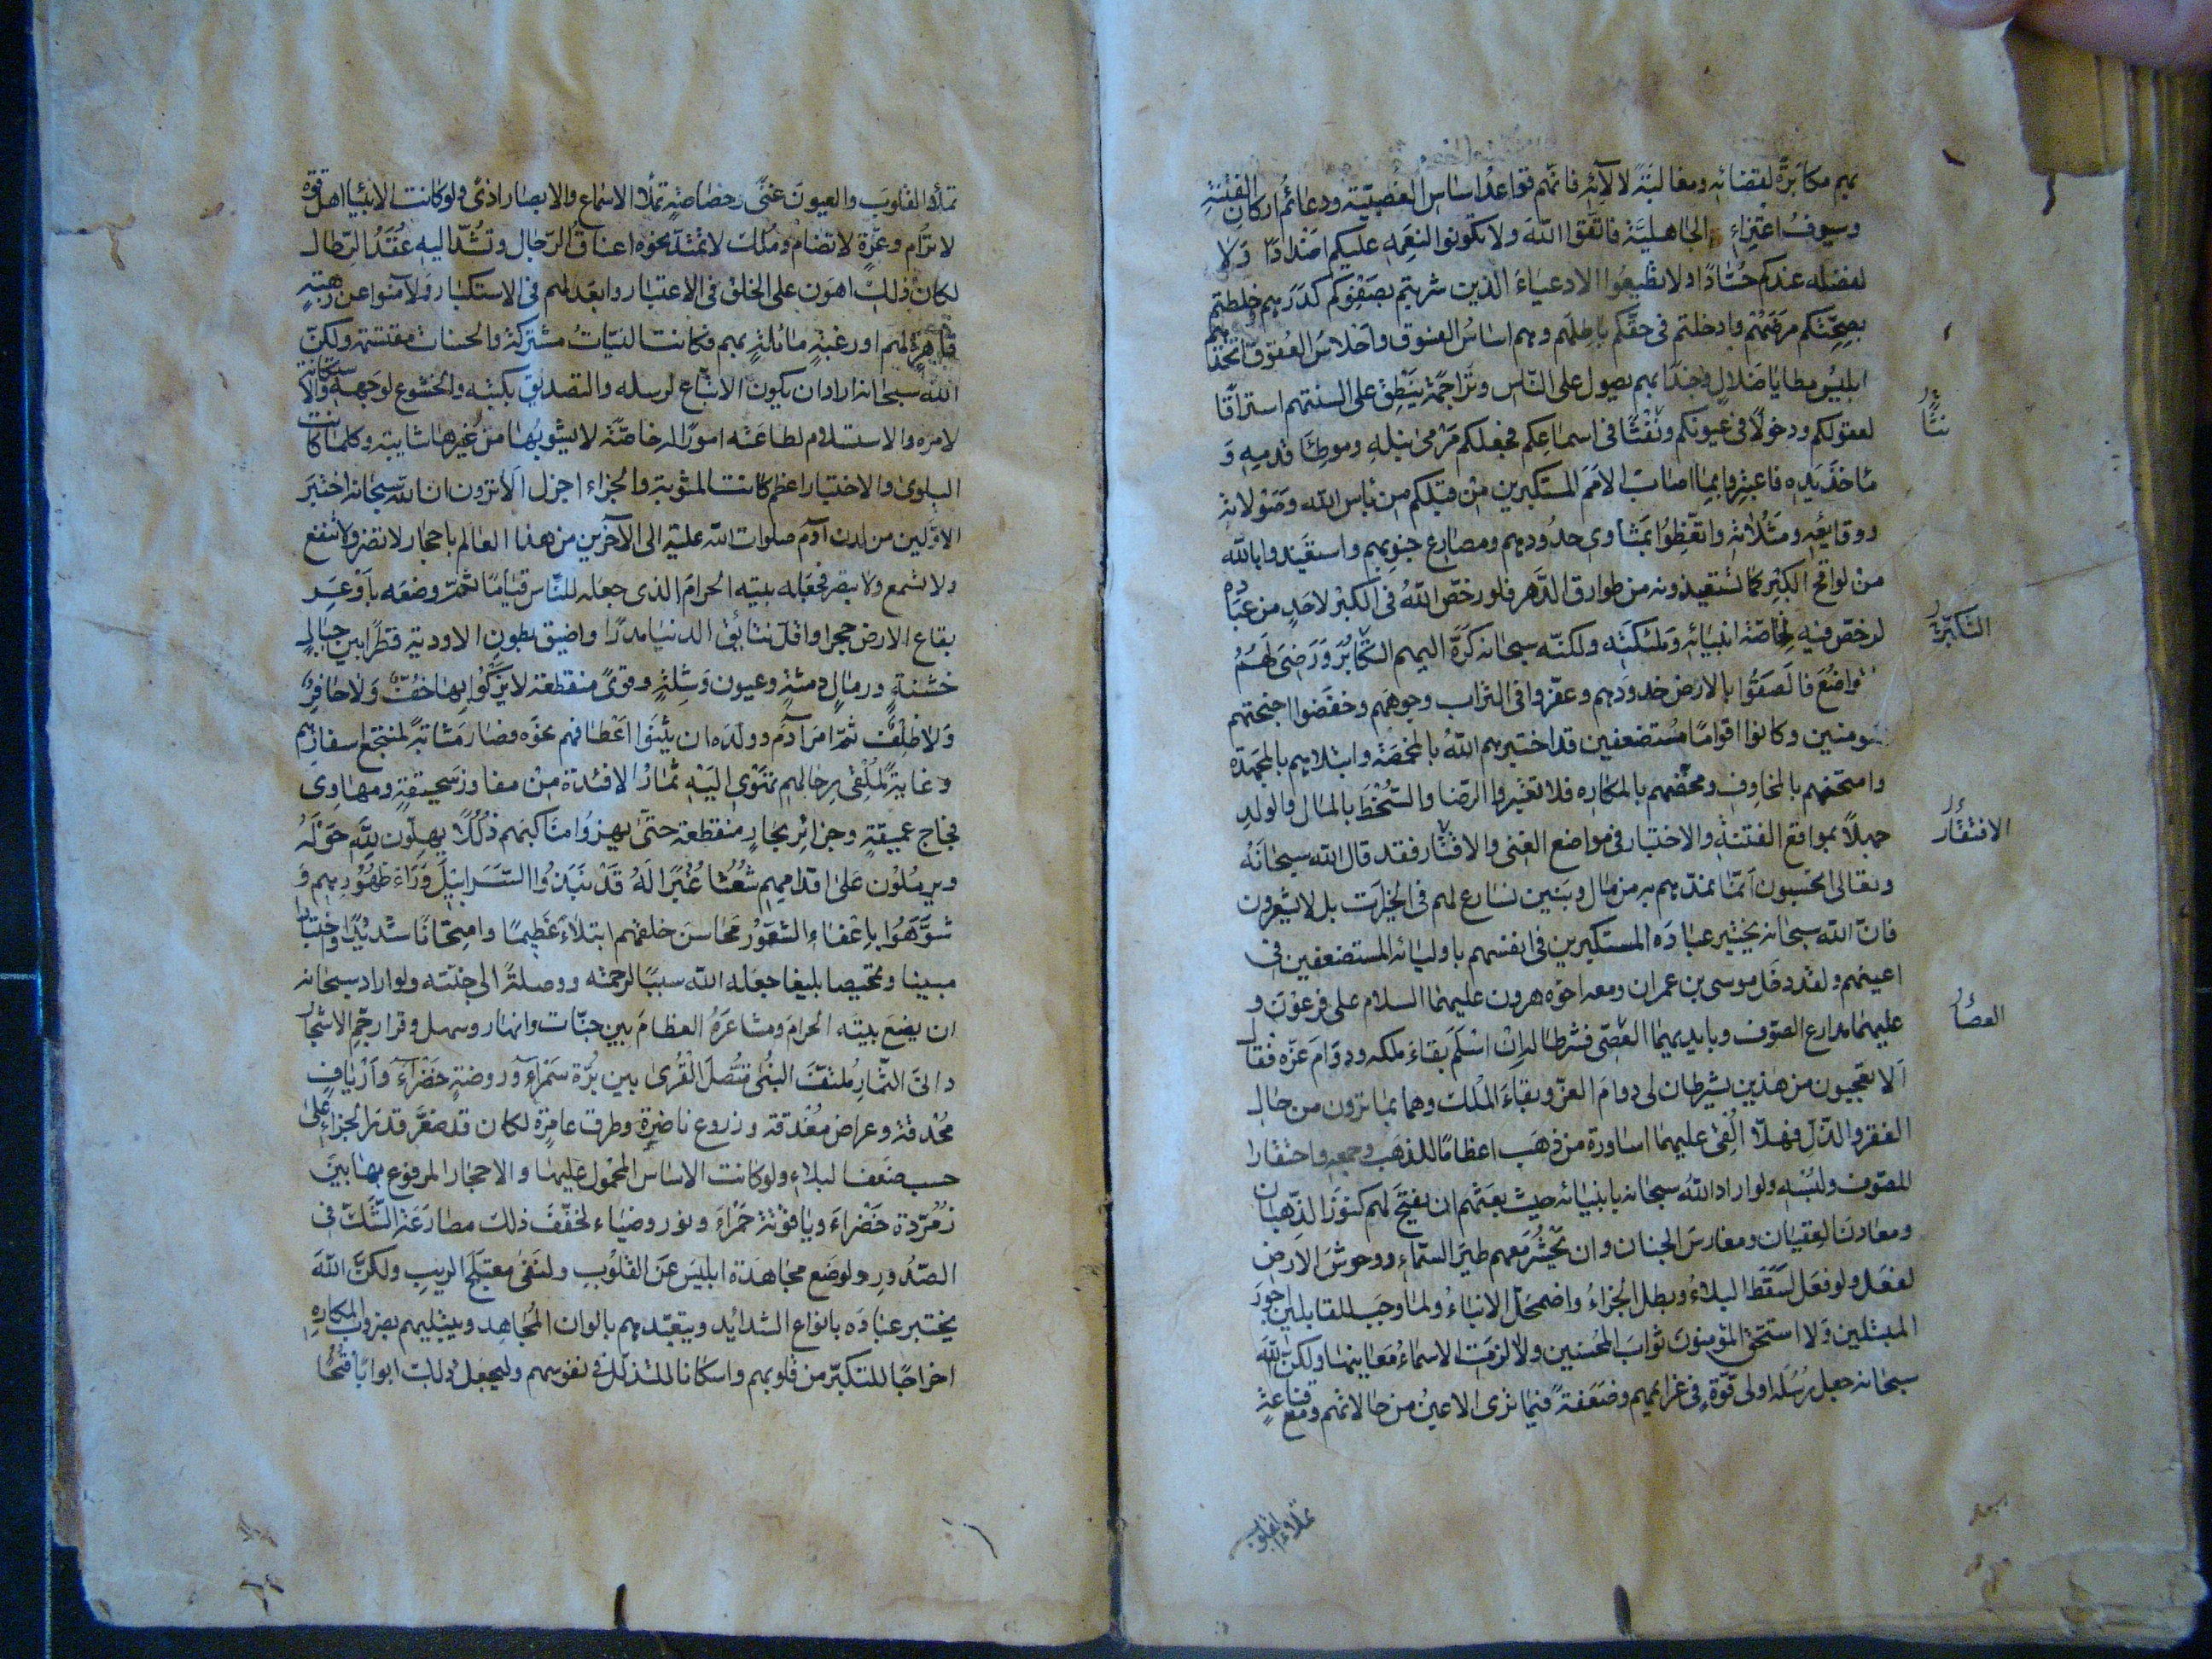 بهم مكابرة لقضائه ومغالبة لآلائه فانهم قواعد اساس العصبيّة ودعائم اركان الفتنة
وسيوف اعتزاء الجاهليّة فاتّقوا الله ولا تكونوا لنعمه عليكم اضدادا ولا
لفضله عندكم حسّادا ولا تطيعوا الادعياء الذين شربتم بصفوكم كدرهم وخلطتم
بصحّتكم مرضهم وادخلتم فى حقّكم باطلهم وهم اساس الفسوق واحلاس العقوق اتّخذهم
ابليس مطايا ضلال وجندا بهم يصول على النّاس وتراجمة ينطق على السنتهم استراقا
لعقولكم ودخولا فى عيونكم ونفثا فى اسماعكم فجعلكم مرمى نبله وموطئ قدميه و
نثّا
ماخذ يده فاعتبروا بما اصاب الامم المستكبرين من قبلكم من باس الله وصولاته
ووقايعه ومثلاته واتّعظوا بمثاوى خدودهم ومصارع جنوبهم واستعيذوا بالله
من لواقح الكبر كما تستعيذونه من طوارق الدّهر فلو رخّص الله فى الكبر لاحد من عباده
لرخّص فيه لخاصّة انبيائه وملئكته ولكنّه سبحانه كرّه اليهم التكابر ورضى لهم
التكبّر
التواضع فالصقوا بالارض خدودهم وعفّروا فى التراب وجوههم وخفضوا اجنحتهم
للمومنين وكانوا اقواما مستضعفين قد اختبرهم الله بالمخمصة وابتلاهم بالمجهدة
وامتحنهم بالمخاوف ومخّضهم بالمكاره فلا تعتبروا الرّضا والسّخط بالمال والولد
جهلا بمواقع الفتنة والاختبار فى مواضع الغنى والاقتار فقد قال الله سبحانه
الافتقار
وتعالى ايحسبون انّما نمدّهم به من مال وبنين نسارع لهم فى الخيرات بل لا يشعرون
فانّ الله سبحانه يختبر عباده المستكبرين فى انفسهم باوليائه المستضعفين فى
اعينهم ولقد دخل موسى بن عمران ومعه اخوه هرون عليهما السلام على فرعون و
عليهما مدارع الصّوف وبايديهما العصى فشرطا له ان اسلم بقاء ملكه ودوام عزّه فقال
العصا
الا تعجبون من هذين يشرطان لى دوام العزّ وبقاء الملك وهما بما ترون من حال
الفقر والذّل فهلّا القى عليهما اساورة من ذهب اعظاما للذهب وجمعه واحتقارا
للصّوف ولبسه ولو اراد الله سبحانه بانبيائه حيث بعثهم ان يفتح لهم كنوز الذّهبان
ومعادن العقيان ومغارس الجنان وان يحشر معهم طير السّماء ووحوش الارض
لفعل ولو فعل لسقط البلاء وبطل الجزاء واضمحلّ الانباء ولما وجب للقابلين اجور
المبتلين ولا استحقّ المؤمنون ثواب المحسنين ولا لزمت الاسماء معانيها ولكن الله
سبحانه جعل رسله اولى قوّة فى عزايمهم وضعفة فيما ترى الاعين من حالاتهم مع قناعة
تملاء القلوب
تملؤ القلوب والعيون غنى وخصاصة تملأ الاسماع والابصار اذى ولو كانت الانبياء اهل قوّة
لا ترام وعزّة لا تضام وملك لا تمتدّ نحوه اعناق الرّجال وتشدّ اليه عقد الرّحال
لكان ذلك اهون على الخلق فى الاعتبار وابعد لهم فى الاستكبار ولآمنوا عن رهبة
قاهرة لهم او رغبة مائلة بهم فكانت النيّات مشتركة والحسنات مقتسمة ولكنّ
الله سبحانه اراد ان يكون الاتّباع لرسله والتصديق بكتبه والخشوع لوجهه والاستكانة
لامره والاستسلام لطاعته امورا له خاصّة لا يشوبها من غيرها شايبة وكلما كانت
البلوى والاختبار اعظم كانت المثوبة والجزاء اجزل الا ترون ان الله سبحانه اختبر
الاوّلين من لدن آدم صلوات الله عليه الى الآخرين من هذا العالم باحجار لا تضر ولا تنفع
ولا تسمع ولا تبصر فجعله بيته الحرام الذى جعله للنّاس قياما ثم وضعه باوعر
بقاع الارض حجرا واقلّ نتائق الدنيا مدرا واضيق بطون الاودية قطرا بين جبال
خشنة ورمال دمثة وعيون وشلة وقرى منقطعة لا يزكوا بها خفّ ولا حافر
ولا ظلف ثمّ امر آدم وولده ان يثنوا اعطافهم نحوه فصار مثابة لمنتجع اسفارهم
وغاية لملقى رحالهم تهوى اليه ثمار الافئدة من مفاوز سحيقة ومهاوى
فجاج عميقة وجزائر بحار منقطعة حتّى يهزوا مناكبهم ذللا يهلّون لله حوله
ويرملون على اقدامهم شعثا غبرا له قد نبذوا السّرابيل وراء ظهورهم و
شوّهوا باعفاء الشعور محاسن خلقهم ابتلاء عظيما وامتحانا شديدا واختبارا
مبينا وتمحيصا بليغا جعله الله سببا لرحمته ووصلة الى جنّته ولو اراد سبحانه
ان يضع بيته الحرام ومشاعره العظام بين جنّات وانهار وسهل وقرار جمّ الاشجار
دانى الثّمار ملتفّ البنى متّصل القرى بين برّة سمراء وروضة خضراء وارياف
محدقة وعراص مغدقة وزروع ناضرة وطرق عامرة لكان قد صغّر قدر الجزاء على
حسب ضعف البلاء ولو كانت الاساس المحمول عليها والاحجار المرفوع بها بين
زمرّدة خضراء وياقوتة حمراء ونور وضياء لخفّف ذلك مصارعة الشّكّ فى
الصّدور ولوضع مجاهدة ابليس عن القلوب ولنفى معتلج الريب ولكنّ الله
يختبر عباده بانواع الشدايد ويتعبّدهم بالوان المجاهد ويبتليهم بضروب المكاره
اخراجا للتكبّر من قلوبهم واسكانا للتذلّل فى نفوسهم وليجعل ذلك ابوابا فتحا